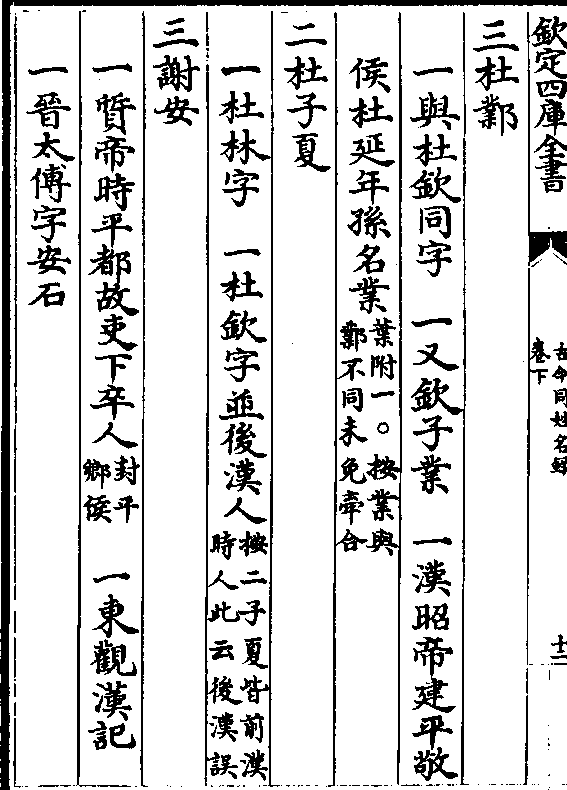 欽定四庫全書
古今同姓名錄
卷下
十二
三杜鄴
一與杜欽同字 一又欽子業 一漢昭帝建平敬
侯杜延年孫名業葉附一〇按業與
鄴不同未免牽合
二杜子夏
一杜林字 一杜欽字並後漢人按二子夏皆前漢
時人此云後漢誤
三謝安
一質帝時平都故吏下卒人封平
鄉侯 一東觀漢記
一晉太傅字安石